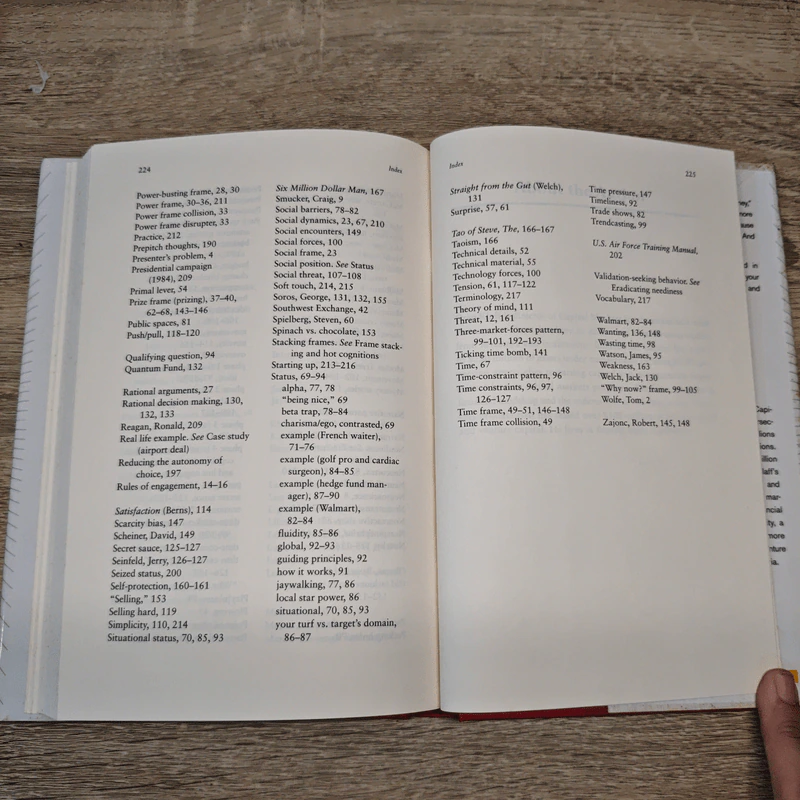 224
Index
Power-busting frame, 28, 30
Power frame, 30–36, 211
Power frame collision, 33
Power frame disrupter, 33
Practice, 212
Prepitch thoughts, 190
Presenter's problem, 4
Presidential campaign
(1984), 209
Primal lever, 54
Prize frame (prizing), 37–40,
62–68, 143–146
Public spaces, 81
Push/pull, 118–120
Qualifying question, 94
Quantum Fund, 132
Rational arguments, 27
Rational decision making, 130,
132, 133
Reagan, Ronald, 209
Real life example. See Case study
(airport deal)
Reducing the autonomy of
choice, 197
Rules of engagement, 14–16
Satisfaction (Berns), 114
Scarcity bias, 147
Scheiner, David, 149
Secret sauce, 125–127
Seinfeld, Jerry, 126–127
Seized status, 200
Self-protection, 160–161
"Selling," 153
Selling hard, 119
Simplicity, 110, 214
Situational status, 70, 85, 93
Six Million Dollar Man, 167
Smucker, Craig, 9
Social barriers, 78–82
Social dynamics, 23, 67, 210
Social encounters, 149
Social forces, 100
Social frame, 23
Social position. See Status
Social threat, 107–108
Soft touch, 214, 215
Soros, George, 131, 132, 155
Southwest Exchange, 42
Spielberg, Steven, 60
Spinach vs. chocolate, 153
Stacking frames. See Frame stack-
ing and hot cognitions
Starting up, 213–216
Status, 69–94
alpha, 77, 78
"being nice," 69
beta trap, 78–84
charisma/ego, contrasted, 69
example (French waiter),
71–76
example (golf pro and cardiac
surgeon), 84–85
example (hedge fund man-
ager), 87–90
example (Walmart),
82–84
fluidity, 85–86
global, 92–93
guiding principles, 92
how it works, 91
jaywalking, 77, 86
local star power, 86
situational, 70, 85, 93
your turf vs. target's domain,
86–87
Index
225
Straight from the Gut (Welch),
131
Surprise, 57, 61
Tao of Steve, The, 166–167
Taoism, 166
Technical details, 52
Technical material, 55
Technology forces, 100
Tension, 61, 117–122
Terminology, 217
Theory of mind, 111
Threat, 12, 161
Three-market-forces pattern,
99–101, 192–193
Ticking time bomb, 141
Time, 67
Time-constraint pattern, 96
Time constraints, 96, 97,
126–127
Time frame, 49–51, 146–148
Time frame collision, 49
Time pressure, 147
Timeliness, 92
Trade shows, 82
Trendcasting, 99
U.S. Air Force Training Manual,
202
Validation-seeking behavior. See
Eradicating neediness
Vocabulary, 217
Walmart, 82–84
Wanting, 136, 148
Wasting time, 98
Watson, James, 95
Weakness, 163
Welch, Jack, 130
"Why now?" frame, 99–105
Wolfe, Tom, 2
Zajonc, Robert, 145, 148
And
in
your
and
and